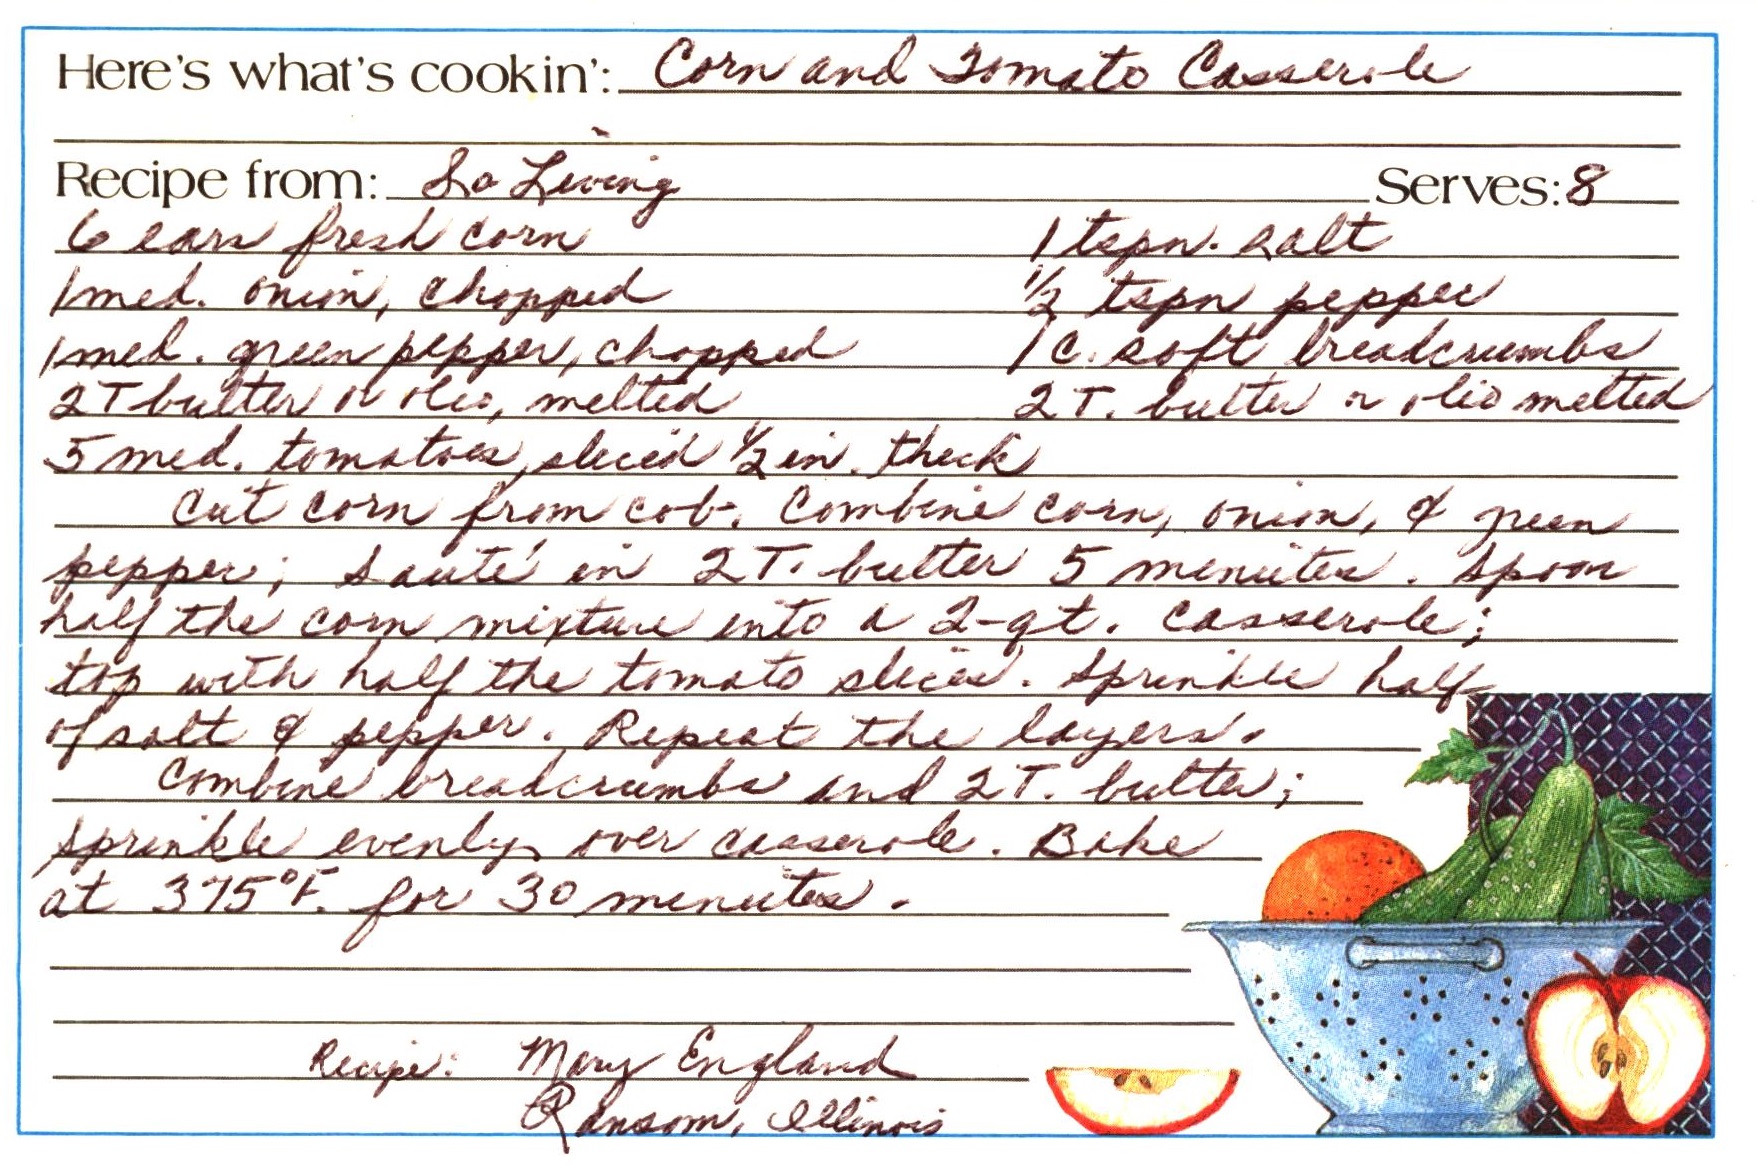 Here's what's cookin': Corn and Tomato Casserole
Recipe from: So Living Serves: 8
6 ears fresh corn 1 tspn. salt
1 med. onion, chopped 1/2 tspn pepper
1 med. green pepper, chopped 1 c. soft breadcrumbs
2 T butter or oleo, melted 2 T. butter or oleo melted
5 med. tomatoes, sliced 1/2 in. thick
Cut corn from cob. Combine corn, onion, & green
pepper; sauté in 2 T. butter 5 minutes. Spoon
half the corn mixture into a 2-qt. casserole;
top with half the tomato slices. Sprinkle half
of salt & pepper. Repeat the layers.
Combine breadcrumbs and 2 T. butter;
sprinkle evenly over casserole. Bake
at 375°F. for 30 minutes.
Recipe: Mary England
Ransom, Illinois